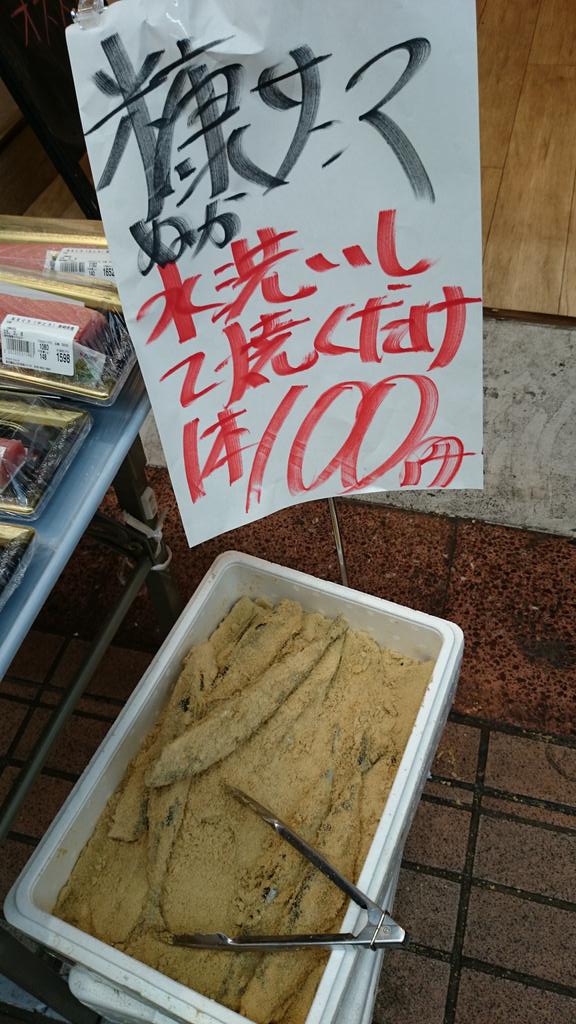 糠サンマ
ぬか
水洗いし
て焼くだけ
1本100円
1080
148 1598
148 1652